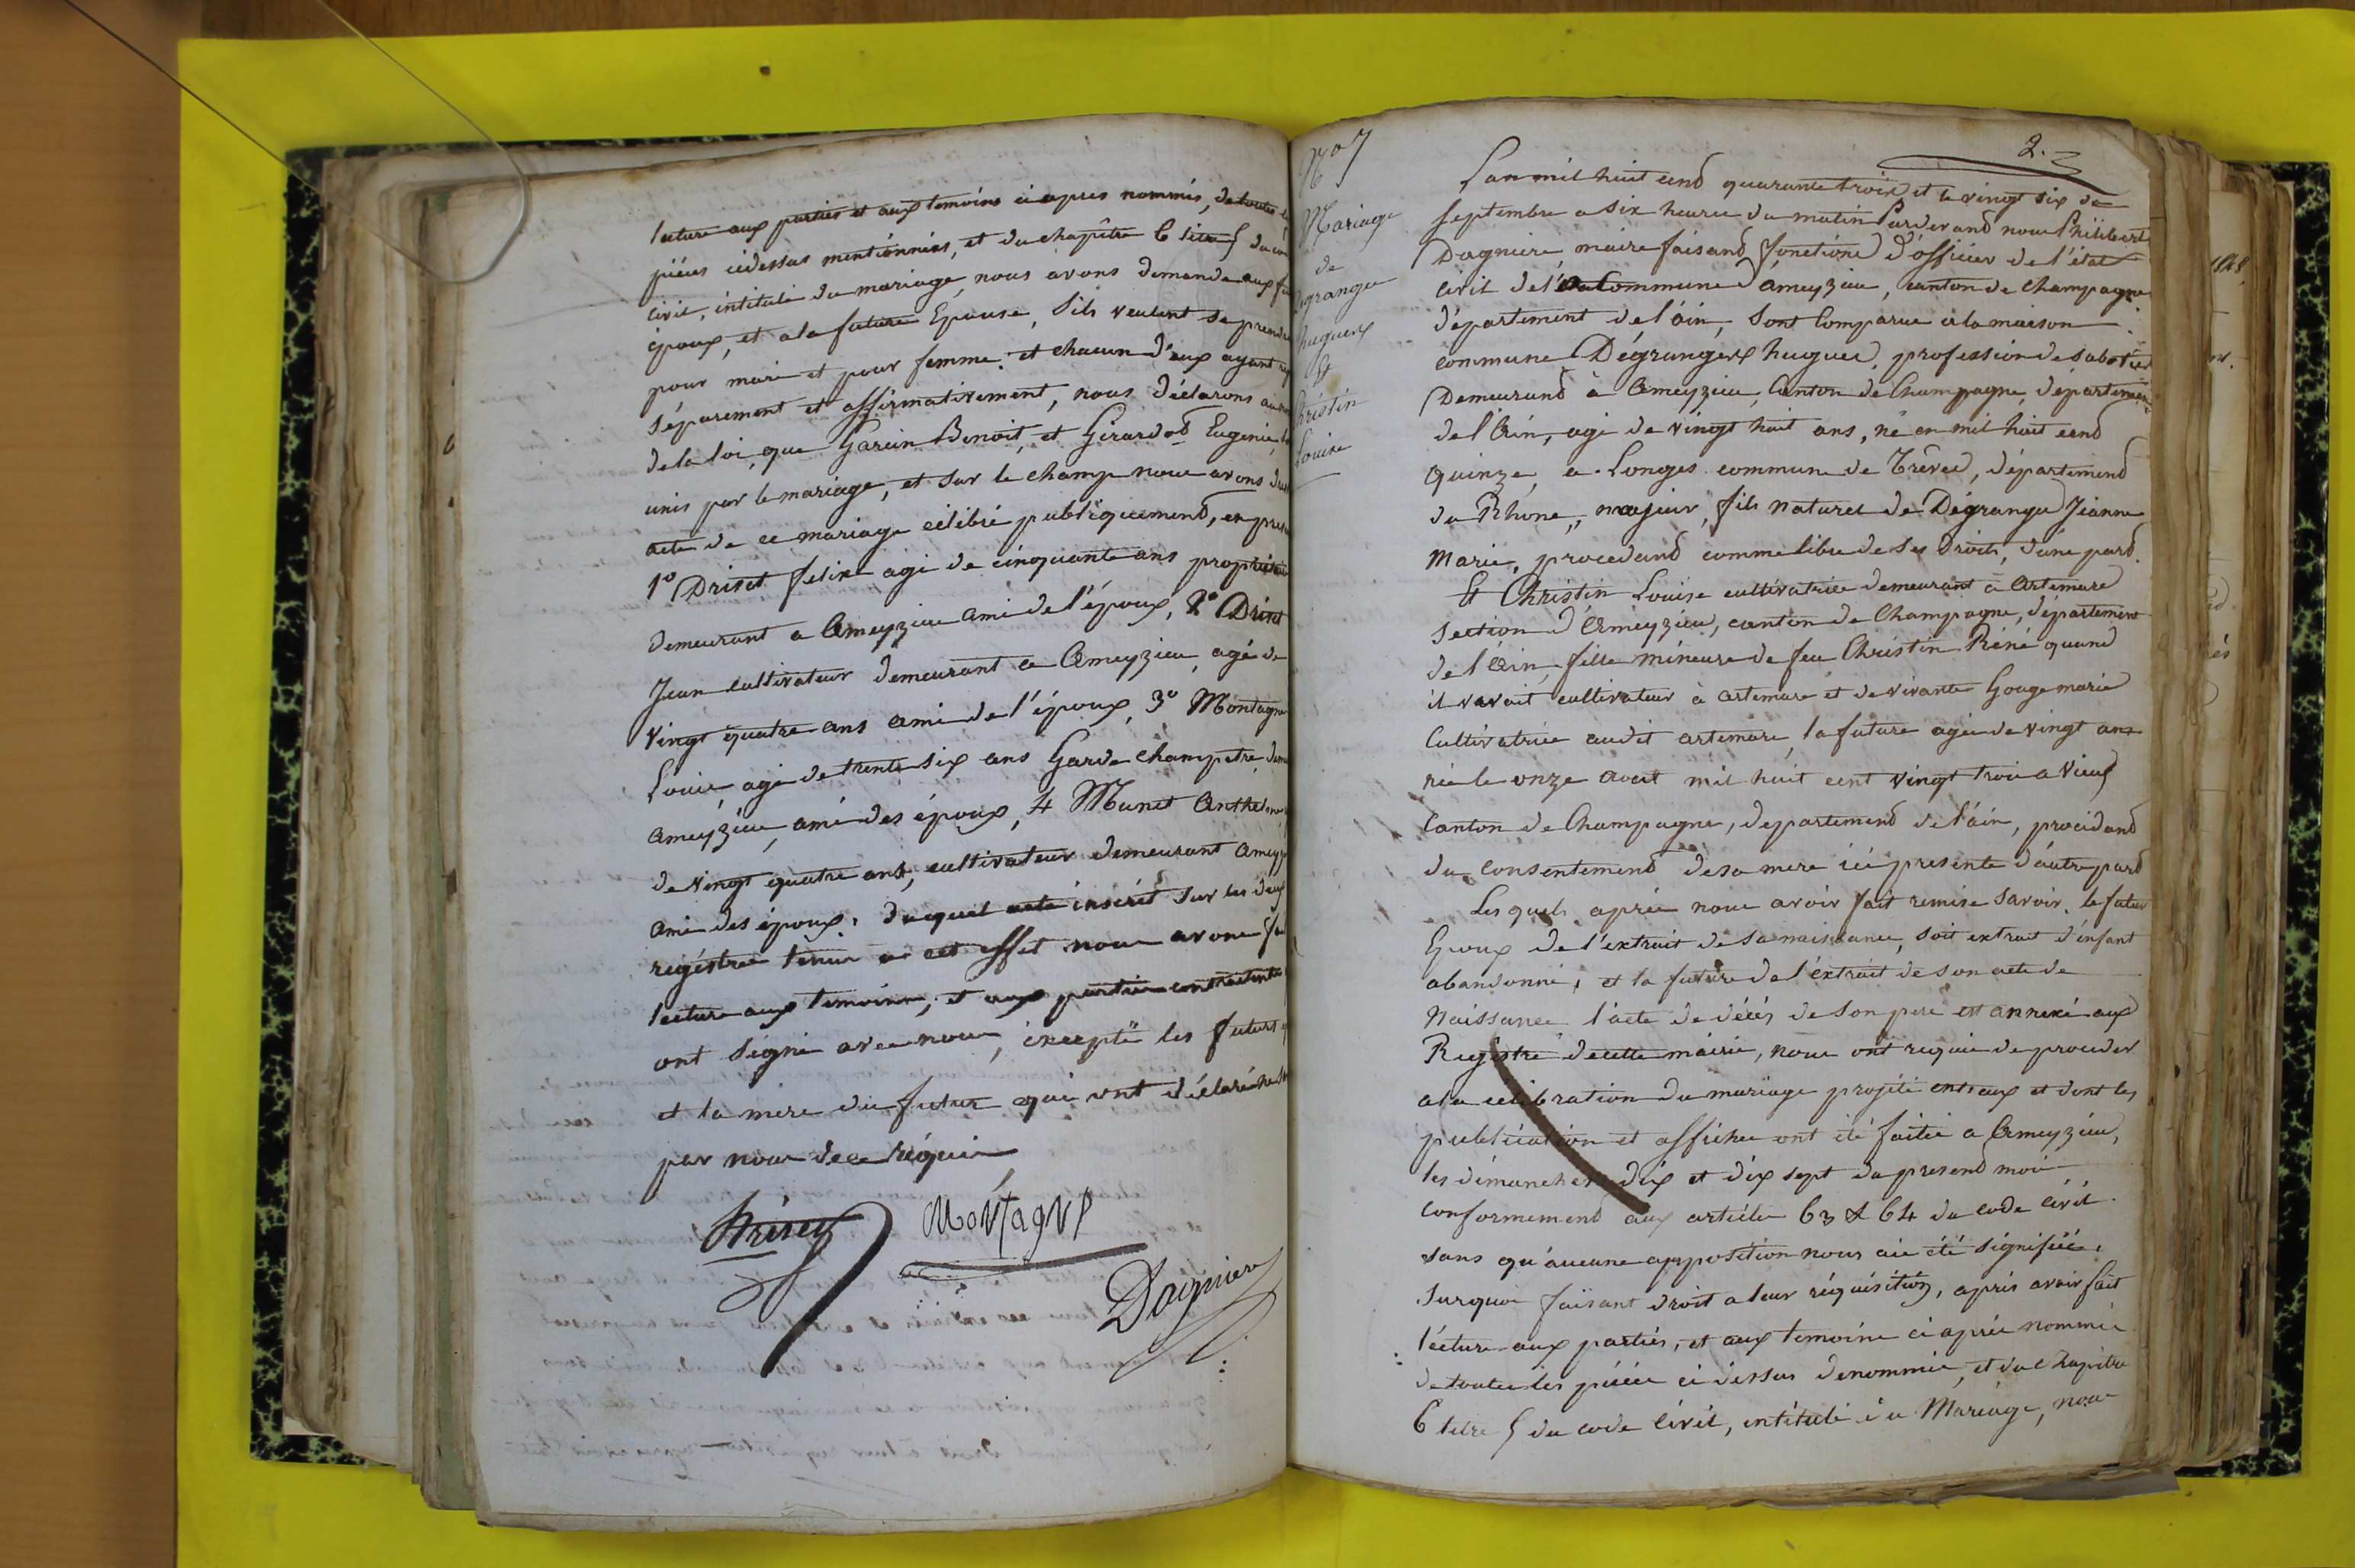 lecture aux parties et aux temoins ci apres nommés, de toutes
piéces cidessus mentionnées, et du chapître 6 titre 5 du
civil, intitulé du mariage, nous avons demandé aux
époux, et a la future Epouse, S'ils veulent se prendre
pour mari et pour femme. et chacun d'eux ayant
séparement et affirmativement, nous déclarons au
de la loi, que Garcin Benoit, et Girardod Eugenie,
unis par le mariage, et sur le champ nous avons
acte de ce mariage célébré publiquemend, en
1º Driset felix agé de cinquante ans propriétaire
demeurant a Ameyzieu ami de l'époux, 2º Driset
Jean cultivateur demeurant a Ameyzieu, agé de
vingt quatre ans ami de l'époux, 3º Montagne
Louis, agé de trente six ans Garde champetre,
ameyzieu, ami des époux, 4 Munet Anthelme
de vingt quatre ans, cultivateur demeurant
ami des époux. duquel acte inscrit sur les deux
registres tenus a cet effet nous avons
lecture aux temoins, et aux parties contractentes
ont signé avec nous, excepté les futurs
et la mere du futur qui ont déclaré ne
par nous de ce réquis
MoNTagNE
Dagniere
Nº 7
Mariage
de
hugues
&
Christin
Louise
2.
L'an mil huit cend quarante trois et le vingt six de
septembre a six heures du matin Pardevand nous Philibert
Dagniere, maire faisand fonctions d'officier de l'état
civil de la Commune d'ameyzieu, canton de champagne
département de l'ain, sont Comparus a la maison
commune Dégranges hugues, profession de sabotier
Demeurand à Ameyzieu, Canton de Champagne, département
de l'Ain, agé de vingt huit ans, né en mil huit cend
quinze, a Longes commune de Trêves, départemend
du Rhone, majeur, fils naturel de Dégranges Jeanne
Marie, procedand comme libre de ses droits, d'une pard.
Et Christin Louise cultivatrice demeurant à Artemare
section d'Ameyzieu, canton de Champagne, département
de l'Ain, fille mineure de feu Christin Réné quand
il vivait cultivateur à artemare et de vivante Gouge marie
Cultivatrice audit artemare, la future agée de vingt ans
née le onze aout mil huit cent vingt trois a Vieu
Canton de Champagne, departemend de l'ain, procédand
du consentemend de sa mere ici presente d'autre pard
Lesquels après nous avoir fait remise savoir, le futur
Epoux de l'extrait de sa naissance, soit extrait d'enfant
abandonné, et la future de l'éxtrait de son acte de
Naissance l'acte de décés de son pere est annexé aux
Registre de cette mairie, nous ont requis de proceder
a la célébration du mariage projété entr'eux et dont les
publication et affiches ont été faites a Ameyzieu,
les dimanches dix et dix sept du presend mois
conformemend aux articles 63 & 64 du code civil.
sans qu'aucune opposition nous aie été signifiée,
surquoi faisant droit a leur réquisition, aprés avoir fait
lécture aux parties, et aux temoins ci aprés nommés
de toutes les piéces ci dessus denommée, et du Chapitre
6 titre 5 du code Civil, intitulé du Mariage, nous